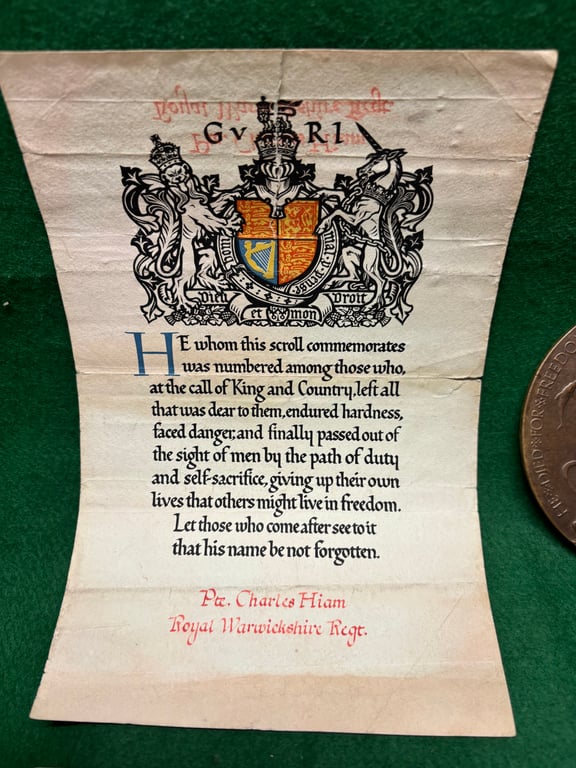 GV RI
Dieu et mon Droit
HE whom this scroll commemorates
was numbered among those who,
at the call of King and Country, left all
that was dear to them, endured hardness,
faced danger, and finally passed out of
the sight of men by the path of duty
and self-sacrifice, giving up their own
lives that others might live in freedom.
Let those who come after see to it
that his name be not forgotten.
Pte. Charles Hiam
Royal Warwickshire Regt.
HE·DIED·FOR·FREEDO